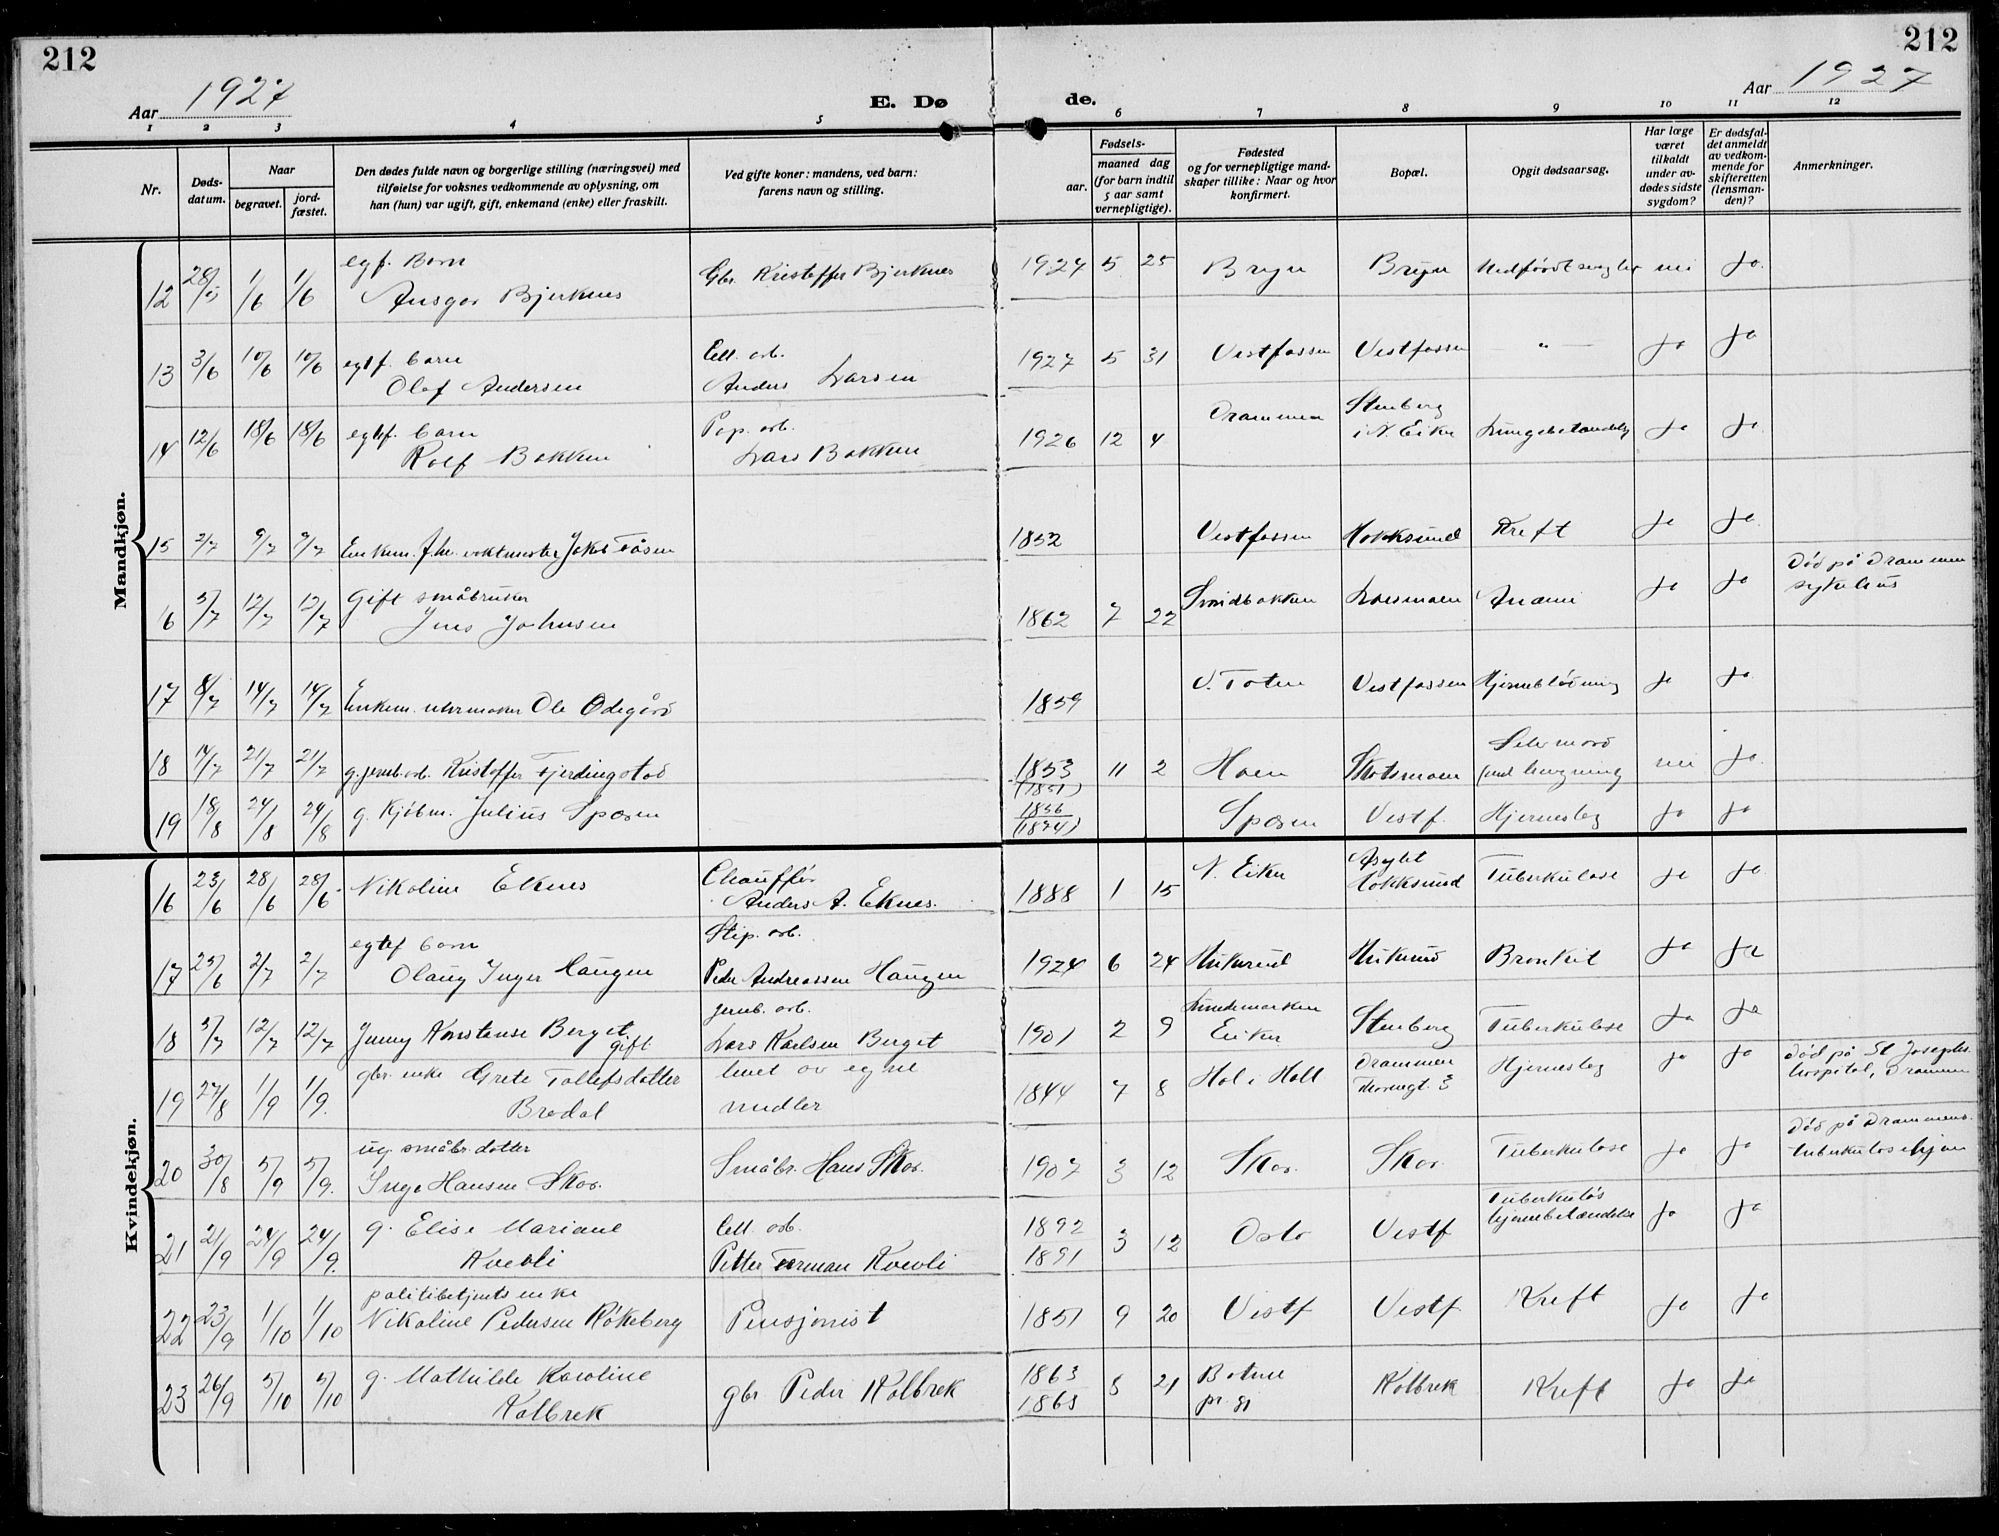 212
212
Aar 1927
Aar 1927
E. Dø
de.
1 2 3 4 5 6 7 8 9 10 11 12
Nr.
Døds-
datum.
Naar
begravet.
jord-
fæstet.
Den dødes fulde navn og borgerlige stilling (næringsvei) med
tilføielse for voksnes vedkommende av oplysning, om
han (hun) var ugift, gift, enkemand (enke) eller fraskilt.
Ved gifte koner: mandens, ved barn:
farens navn og stilling.
Fødsels-
aar.
maaned dag
(for barn indtil
5 aar samt
vernepligtige).
Fødested
og for vernepligtige mand-
skaper tillike: Naar og hvor
konfirmert.
Bopæl.
Opgit dødsaarsag.
Har læge
været
tilkaldt
under av-
dødes sidste
sygdom?
Er dødsfal-
det anmeldt
av vedkom-
mende for
skifteretten
(lensman-
den)?
Anmerkninger.
Mandkjøn.
egf. Barn
12 28/5 1/6 1/6 Ansgar Bjerknes Gbr. Kristoffer Bjerknes 1927 5 25 Bryn Bryn nei ja
egtf. barn Cell. arb.
13 3/6 10/6 10/6 Olaf Andersen Anders Larsen 1927 5 31 Vestfossen Vestfossen — " — ja ja
egtef. barn Pap. arb. Drammen Stenberg
14 12/6 18/6 18/6 Rolf Bakken Lars Bakken 1926 12 4 i N. Eiker Lungebetændelse ja ja
15 2/7 9/7 9/7 Enkem. f.hv. vaktmester Jakob Fåsen 1852 Vestfossen Hokksund Kreft ja ja
Gift småbruker Død på Drammen
6 5/7 12/7 12/7 Jens Johnsen 1862 7 22 Smidbakken Loesmoen Anæmi ja ja sykehus
17 8/7 14/7 14/7 Enkem. uhrmaker Ole Ødegård 1859 V. Toten Vestfossen Hjerneblødning ja ja
Selvmord
18 14/7 21/7 21/7 g. jernb. arb. Kristoffer Fjerdingstad 1853 11 2 Hoen Skotsmoen (ved hengning nei ja
(1851)
1856
19 18/8 24/8 24/8 g. Kjøbm. Julius Sparen (1874) Sparen Vestf. Hjerneslag ja ja
Kvindekjøn.
Chauffør N. Eiker Asylet
16 23/6 28/6 28/6 Nikoline Eknes Anders A. Eknes. 1888 1 15 Hokksund Tuberkulose ja ja
egtef barn Slip. arb.
17 25/6 2/7 2/7 Olaug Inger Haugen Peder Andreassen Haugen 1924 6 24 Bronkit ja ja
jernb. arb. Lundemarken
18 5/7 12/7 12/7 Jenny Konstanse Berget gift Lars Karlsen Berget 1901 2 9 Eiker Stenberg Tuberkulose ja ja
gbr. enke Grete Tollefsdatter levet av egne Drammen Død på St Josephs
19 27/8 1/9 1/9. Bredal midler 1844 7 8 Hol i Holt Hjerneslag ja ja hospital, Drammen
ug. småbr. datter Død på Drammens
20 30/8 5/9 5/9. Inga Hansen Skar. Småbr. Hans Skar. 1907 3 12 Skar. Skar. Tuberkulose ja ja tuberkulosehjem
g. Elise Mariane Cell. arb. 1892 Tuberkuløs
21 21/9 24/9 24/9. Kvevli Petter Ferman Kvevli 1891 3 12 Oslo Vestf hjernebetændelse ja ja
politibetjents enke
22 23/9 1/10 1/10 Nikoline Pedersen Røkeberg Pensjonist 1851 9 20 Vestf Vestf. Kreft ja ja
g. Mathilde Karoline 1863 Botne
23 26/9 5/10 5/10 Kolbrek gbr Peder Kolbrek 1865 5 21 Kolbrek Kreft ja ja